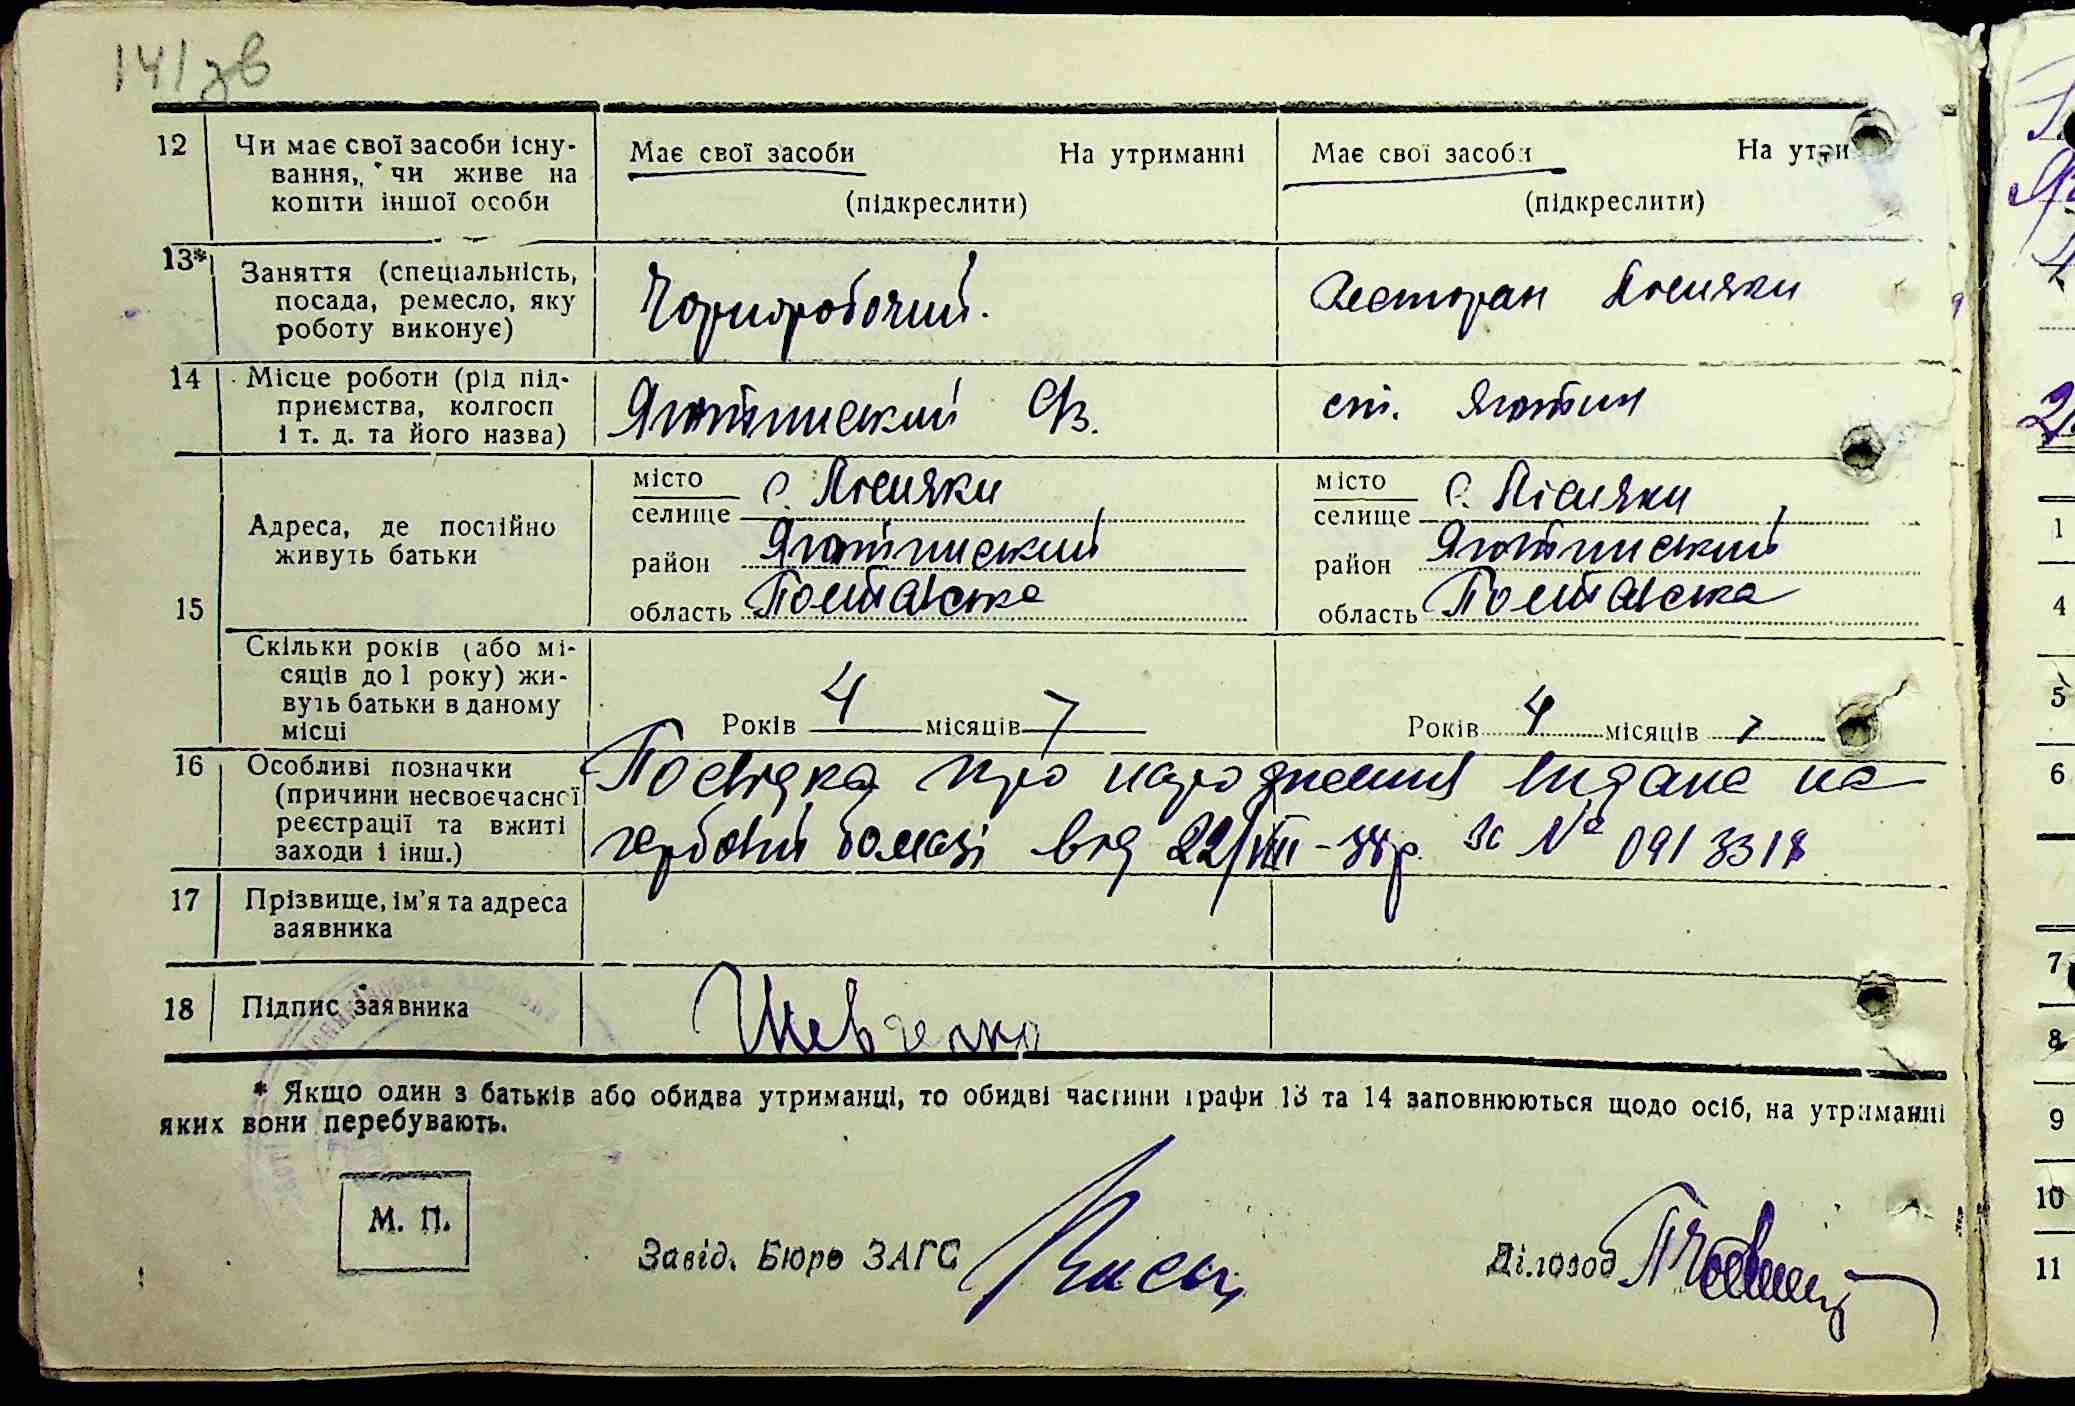 141 зв
12 Чи має свої засоби існу-
вання, чи живе на
кошти іншої особи
Має свої засоби На утриманні
(підкреслити)
Має свої засоби На утри
(підкреслити)
13* Заняття (спеціальність,
посада, ремесло, яку
роботу виконує)
Чорноробочий.
Ресторан
14 Місце роботи (рід під-
приємства, колгосп
і т. д. та його назва)
Яготинский
ст. Яготин
15 Адреса, де постійно
живуть батьки
місто
селище с. Лісняки
район Яготинський
область Полтавська
місто
селище с. Лісняки
район Яготинський
область Полтавська
Скільки років (або мі-
сяців до 1 року) жи-
вуть батьки в даному
місці
Років 4 місяців 7
Років 4 місяців 7
16 Особливі позначки
(причини несвоєчасної
реєстрації та вжиті
заходи і інш.)
Посвідка про народження видана на
гербовій бомазі від 22/VIII-38р. за № 0913318
17 Прізвище, ім'я та адреса
заявника
18 Підпис заявника
Шевченко
* Якщо один з батьків або обидва утриманці, то обидві частини графи 13 та 14 заповнюються щодо осіб, на утриманні
яких вони перебувають.
М. П.
Завід. Бюро ЗАГС
Діловод
1
4
5
6
7
8
9
10
11